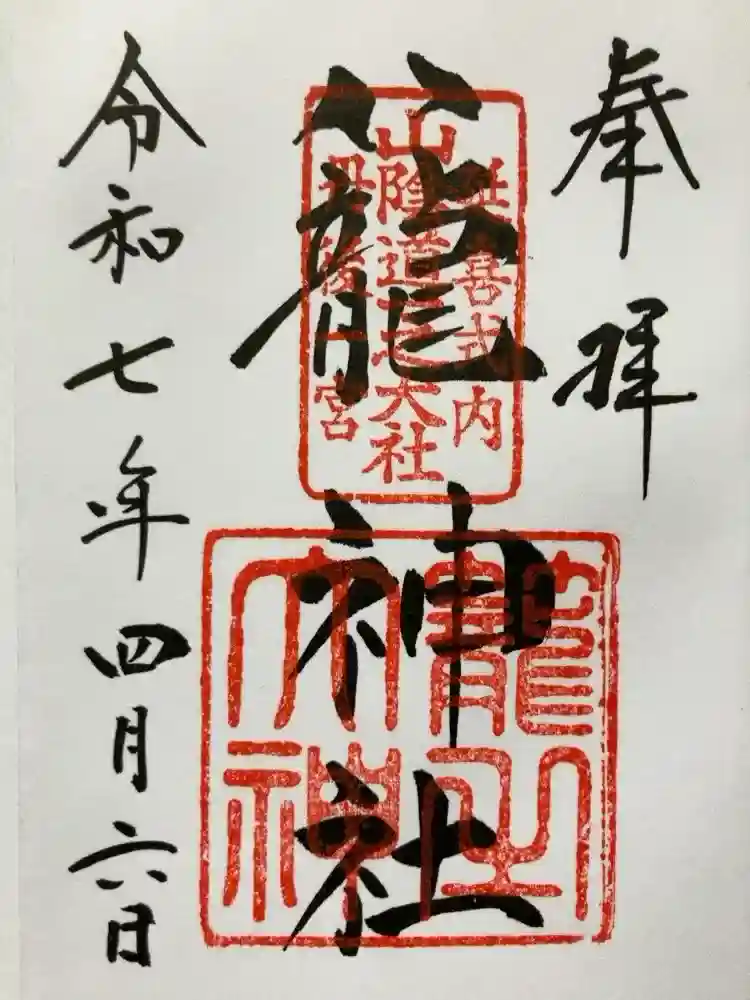 奉拝
延喜式内
山陰道一之大社
丹後一宮
籠神社
籠之大神
令和七年四月六日